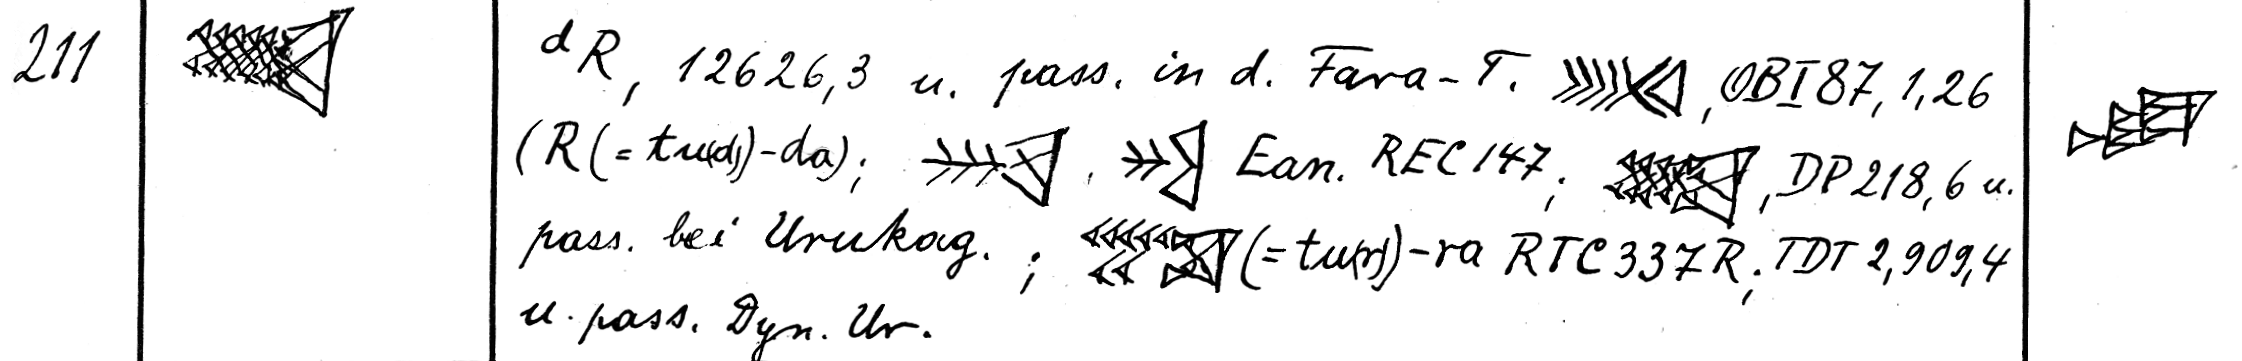 211 ᵈR, 12626,3 u. pass. in d. Fara-T. , OBI 87, 1, 26
(R (= tu(d))-da); , Ean. REC 147; , DP 218, 6 u.
pass. bei Urukag.; (= tu(r))-ra RTC 337 R; TDT 2, 909, 4
u. pass. Dyn. Ur.